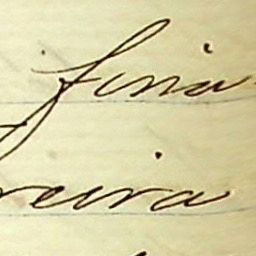 fina
reira